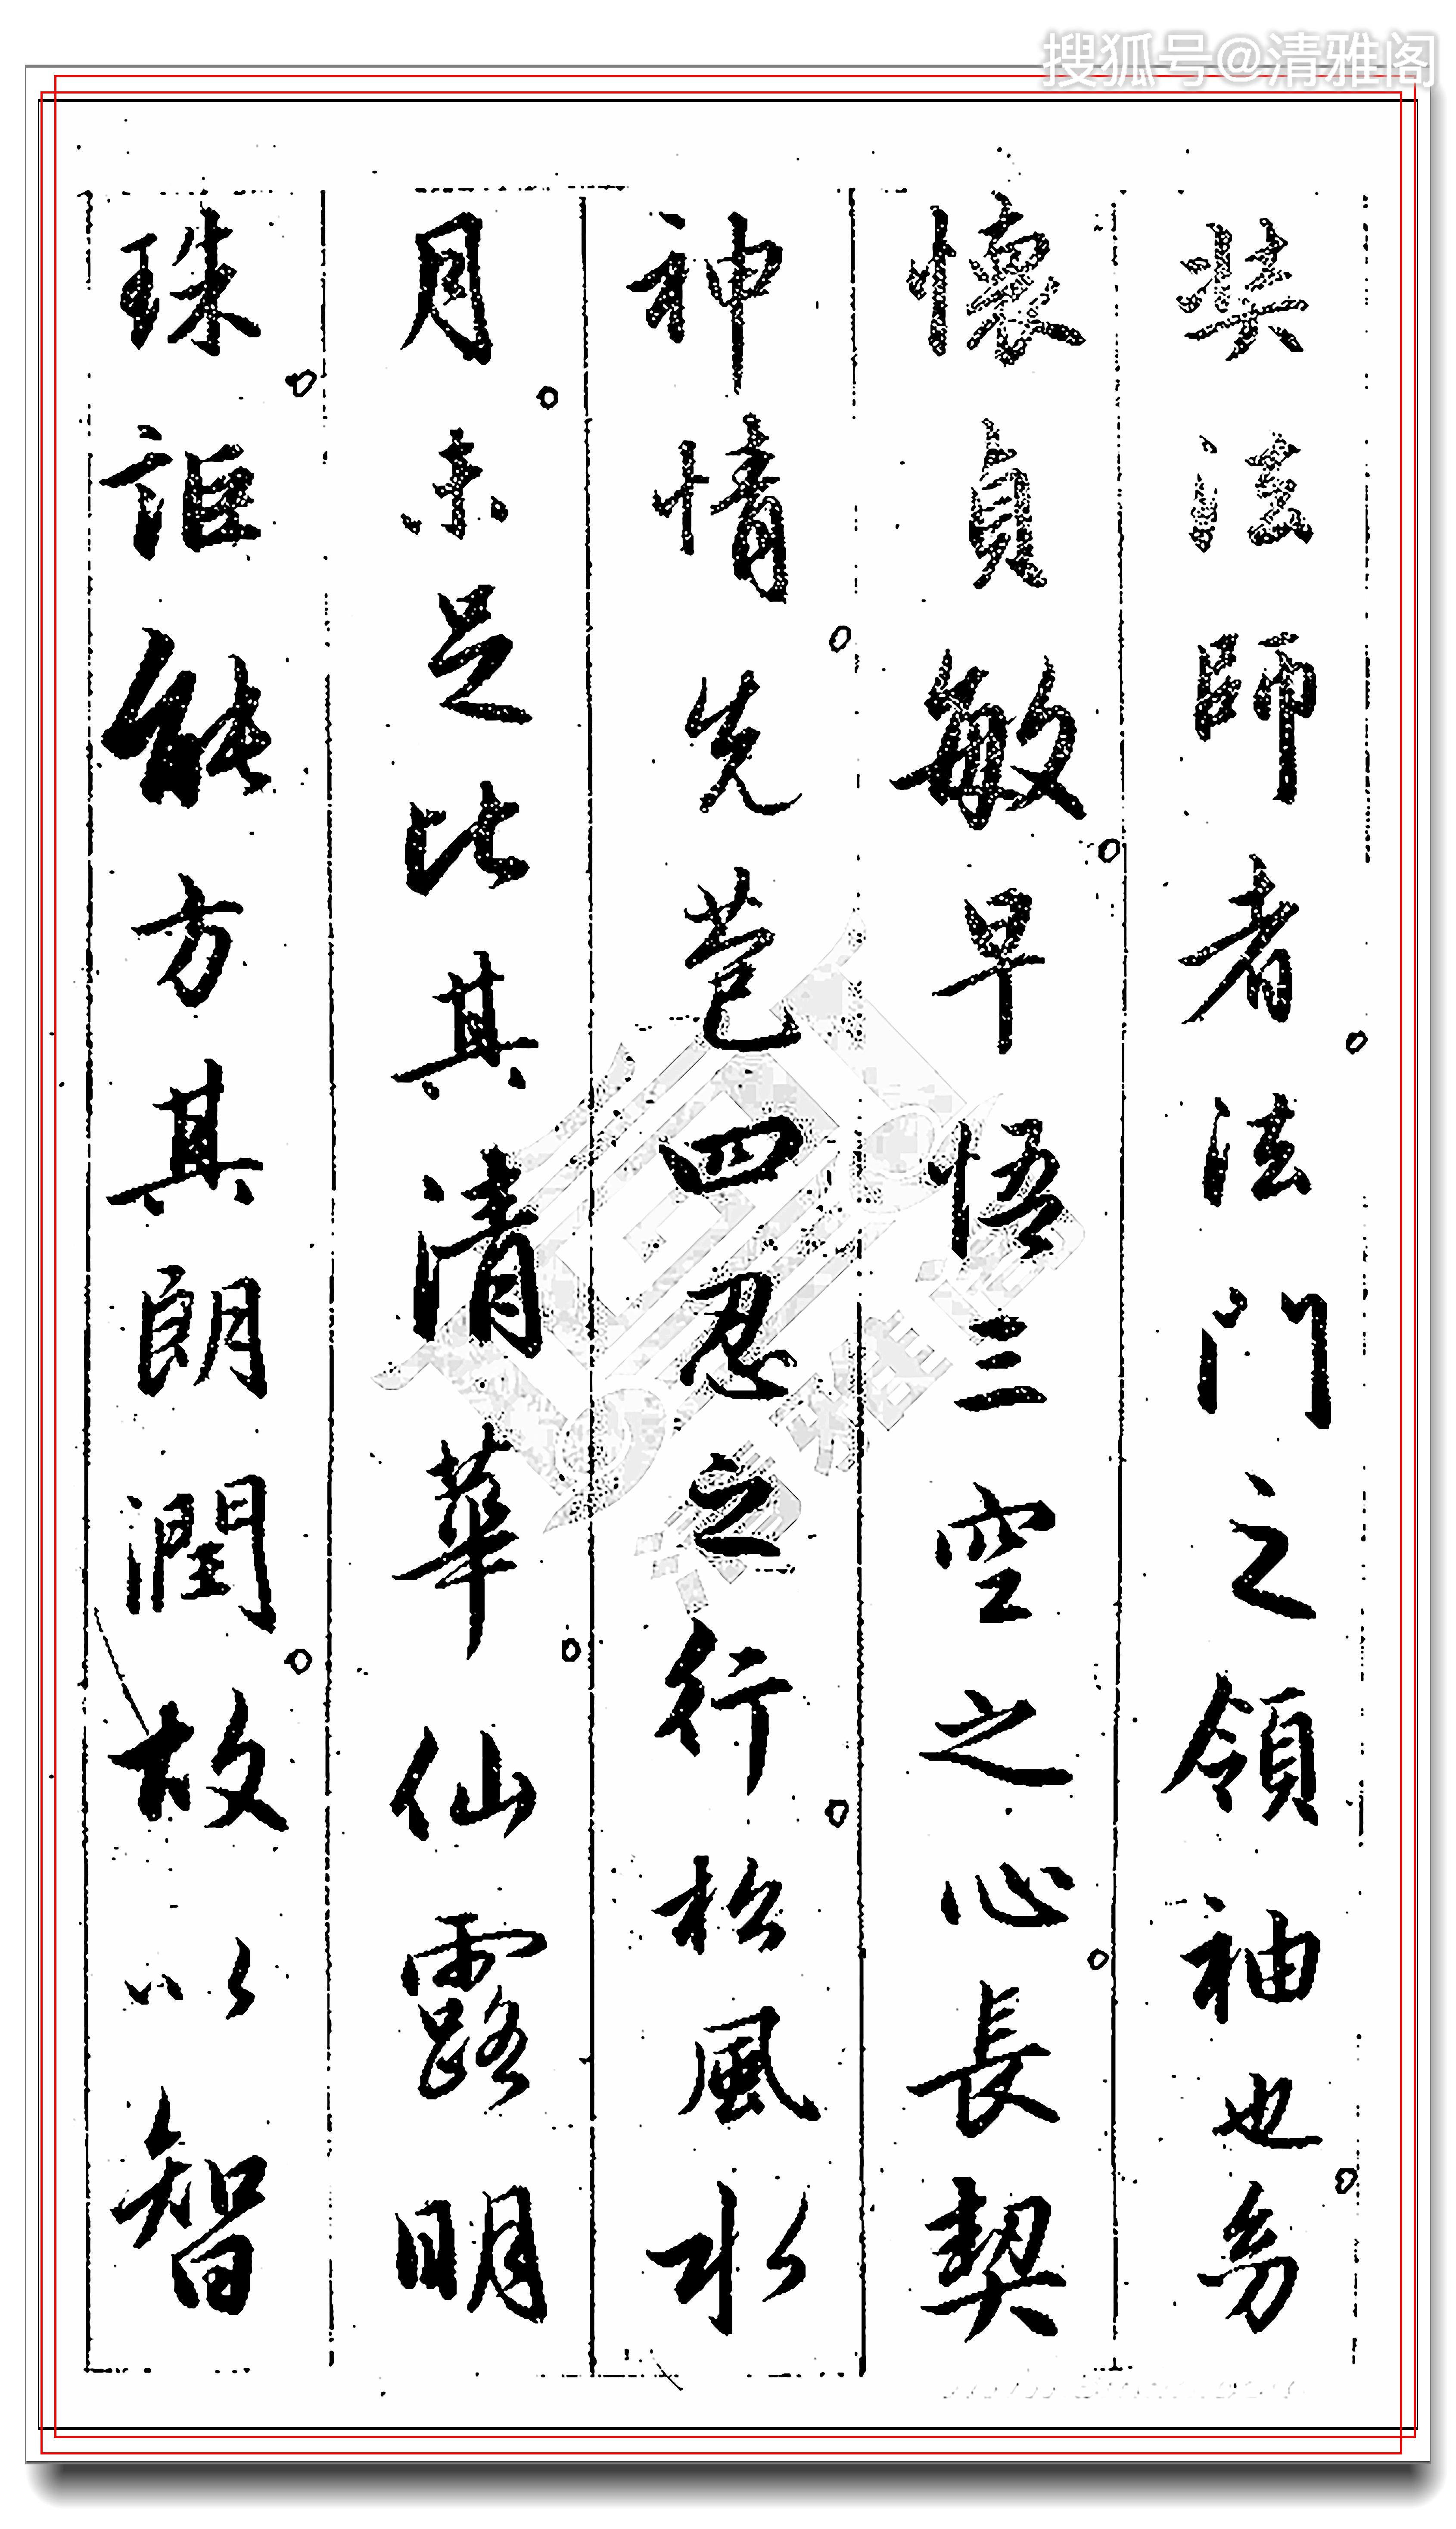 搜狐号@清雅阁
奘法師者法門之領袖也幼
懷貞敏早悟三空之心長契
神情先苞四忍之行松風水
月未足比其清華仙露明
珠詎能方其朗潤故以智
清雅阁